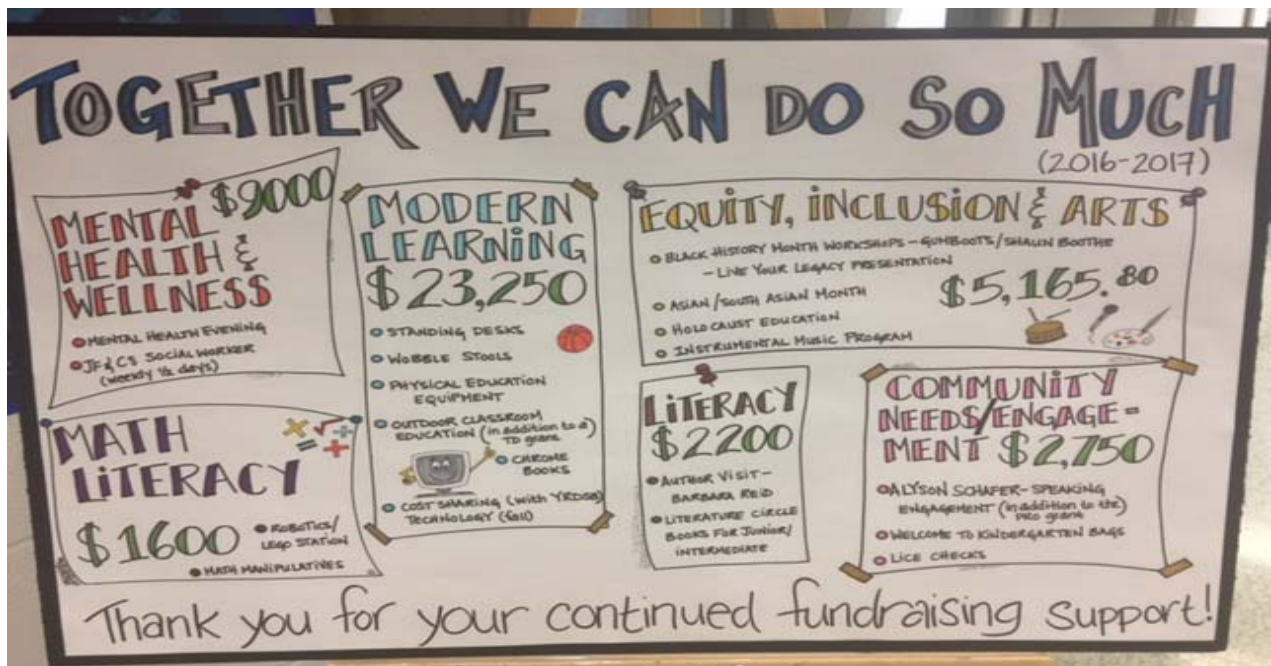 TOGETHER WE CAN DO SO MUCH
(2016-2017)
MENTAL $9000
HEALTH &
WELLNESS
MENTAL HEALTH EVENING
JF&CS SOCIAL WORKER
(weekly 1/2 days)
MATH
LITERACY
$1600
ROBOTICS/
LEGO STATION
MATH MANIPULATIVES
MODERN
LEARNING
$23,250
STANDING DESKS
WOBBLE STOOLS
PHYSICAL EDUCATION
EQUIPMENT
OUTDOOR CLASSROOM
EDUCATION (in addition to a)
TD grant
CHROME
BOOKS
COST SHARING (with YRDSB)
TECHNOLOGY (fall)
EQUITY, INCLUSION & ARTS
BLACK HISTORY MONTH WORKSHOPS - GUMBOOTS/SHAUN BOOTHE
- LIVE YOUR LEGACY PRESENTATION
$5,165.80
ASIAN/SOUTH ASIAN MONTH
HOLOCAUST EDUCATION
INSTRUMENTAL MUSIC PROGRAM
LITERACY
$2200
AUTHOR VISIT-
BARBARA REID
LITERATURE CIRCLE
BOOKS FOR JUNIOR/
INTERMEDIATE
COMMUNITY
NEEDS/ENGAGE-
MENT $2,750
ALYSON SCHAFER- SPEAKING
ENGAGEMENT (in addition to the)
PRO grant
WELCOME TO KINDERGARTEN BAGS
LICE CHECKS
Thank you for your continued fundraising support!